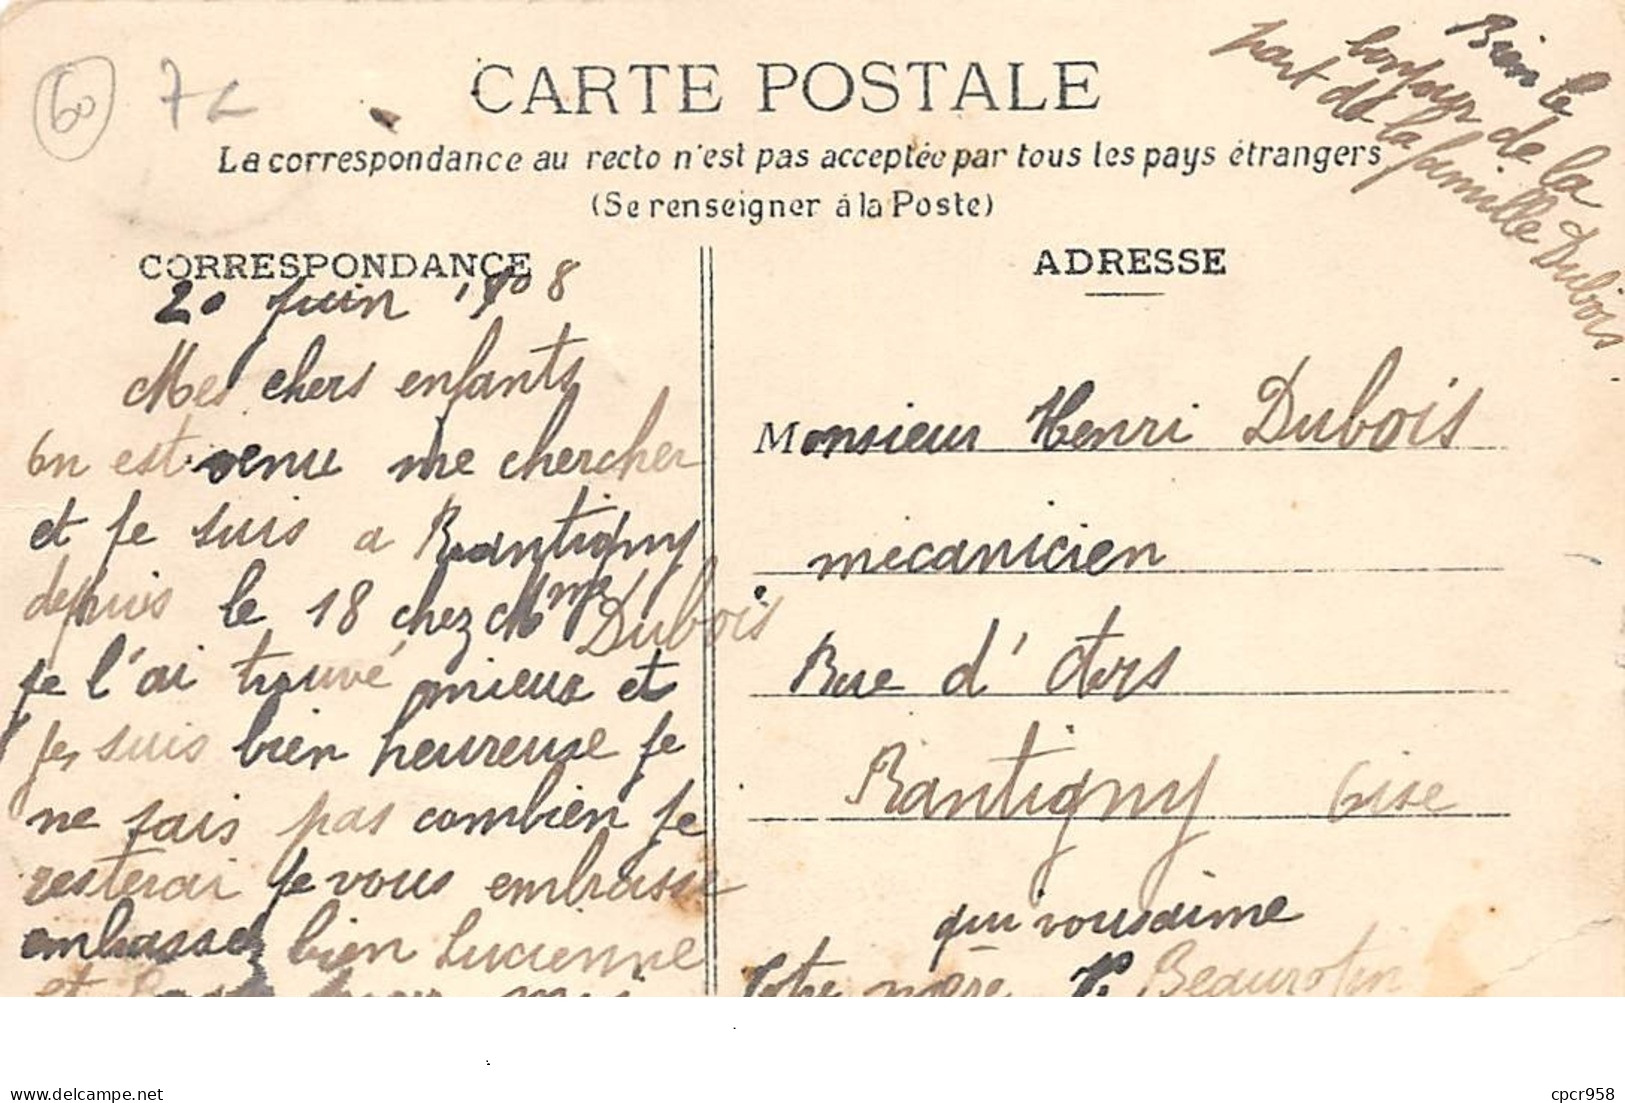 60
CARTE POSTALE
La correspondance au recto n'est pas acceptée par tous les pays étrangers
(Se renseigner à la Poste)
Bien le
bonjour de la
part de la famille Dubois
CORRESPONDANCE
20 juin 1908
Mes chers enfants
on est venu me chercher
et je suis a Rantigny
depuis le 18 chez Mme Dubois
je l'ai trouvé mieux et
je suis bien heureuse je
ne sais pas combien je
resterai je vous embrasse
embrassez bien Lucienne
et pour moi
ADRESSE
Monsieur Henri Dubois
mecanicien
Rue d' Ars
Rantigny Oise
qui vous aime
Votre mère
delcampe.net
cpcr958